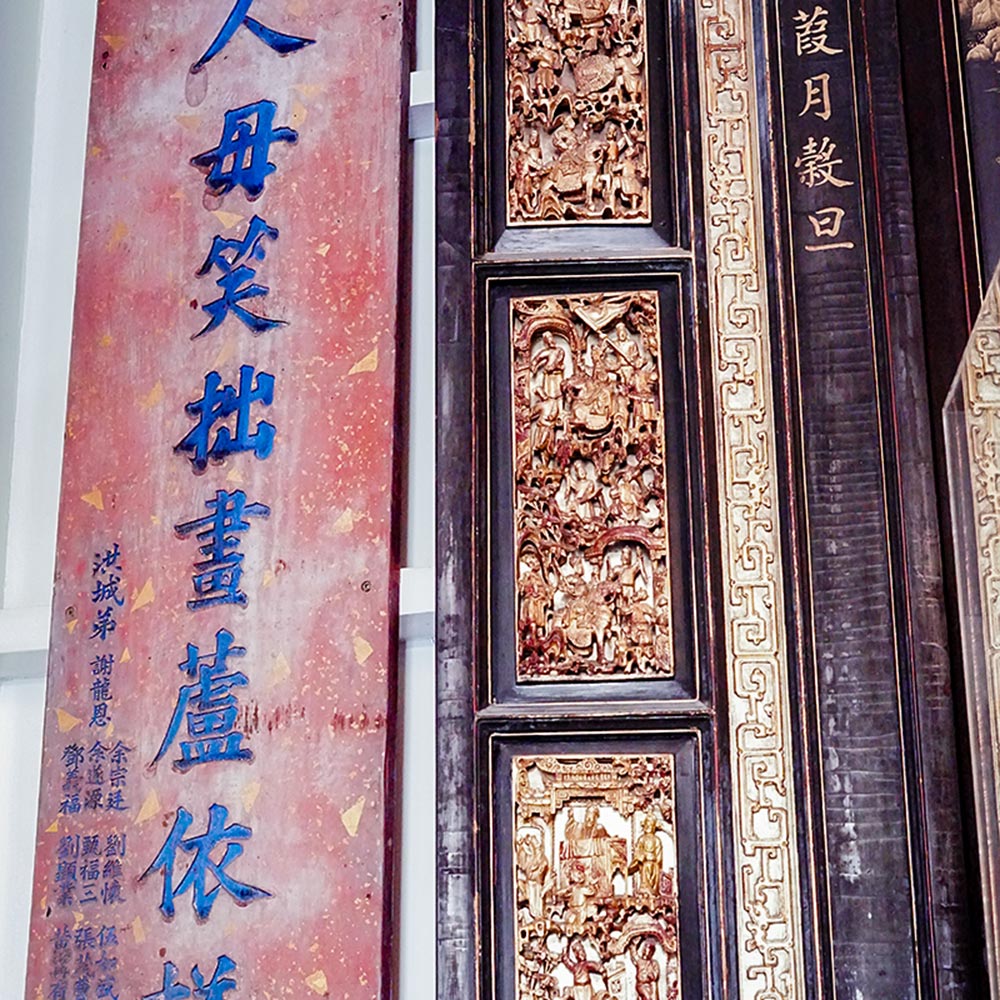 葭月穀旦
人毋笑拙畫蘆依
洪城弟 謝龍恩
余宗廷 劉維懷 伍
余遂源 甄福三 張
鄧義福 劉顯業